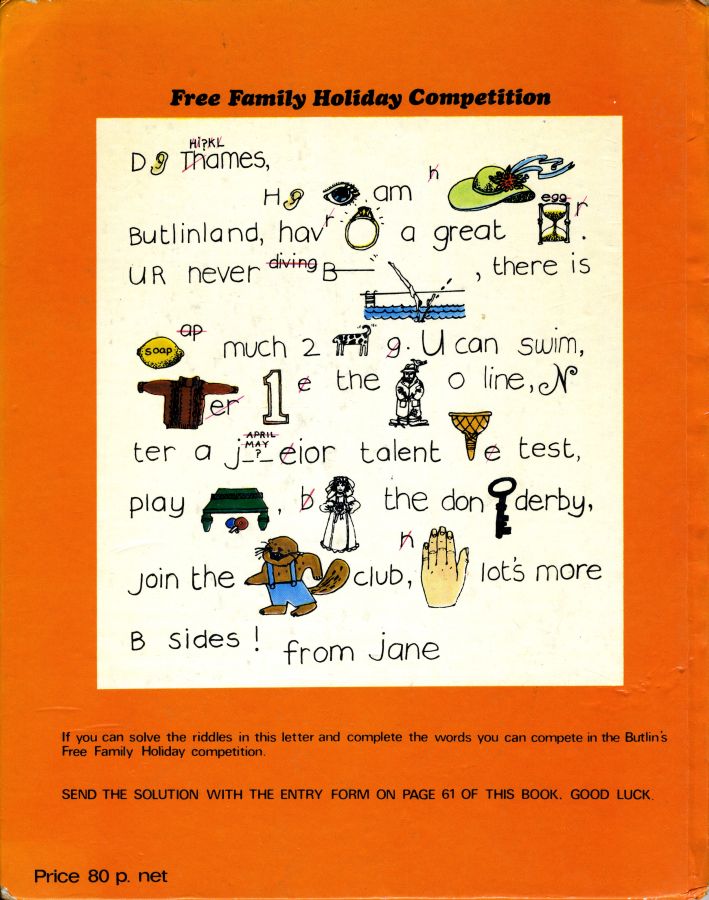 Free Family Holiday Competition
HI?KL
D Thames,
H am h
egg r
Butlinland, hav r a great .
UR never diving B , there is
ap
soap much 2 g. U can swim,
er 1 e the o line, N
APRIL
MAY
?
ter a j_ _ _ eior talent e test,
play , b the don derby,
join the club, h lot's more
B sides! from Jane
If you can solve the riddles in this letter and complete the words you can compete in the Butlin's
Free Family Holiday competition.
SEND THE SOLUTION WITH THE ENTRY FORM ON PAGE 61 OF THIS BOOK. GOOD LUCK.
Price 80 p. net